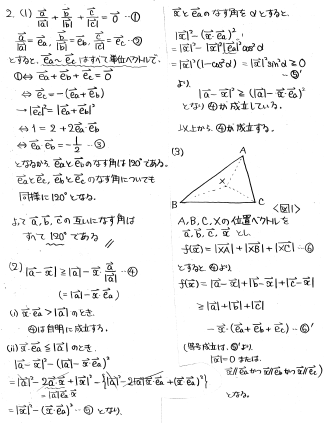 2. (1) a⃗/|a⃗| + b⃗/|b⃗| + c⃗/|c⃗| = 0⃗ …①
a⃗/|a⃗| = e⃗a, b⃗/|b⃗| = e⃗b, c⃗/|c⃗| = e⃗c …②
とすると、e⃗a~e⃗cはすべて単位ベクトルで、
①⇔ e⃗a + e⃗b + e⃗c = 0⃗
⇔ e⃗c = -(e⃗a + e⃗b)
→ |e⃗c|² = |e⃗a + e⃗b|²
⇔ 1 = 2 + 2e⃗a·e⃗b
⇔ e⃗a·e⃗b = -1/2 …③
となるから e⃗aとe⃗bのなす角は120°である。
e⃗aとe⃗c、e⃗bとe⃗cのなす角についても
同様に120°となる。
よって a⃗, b⃗, c⃗の互いになす角は
すべて120°である
(2) |a⃗-x⃗| ≧ |a⃗| - x⃗·a⃗/|a⃗| …④
(= |a⃗| - x⃗·e⃗a)
(i) x⃗·e⃗a > |a⃗| のとき、
④は自明に成立する。
(ii) x⃗·e⃗a ≦ |a⃗| のとき、
|a⃗-x⃗|² - (|a⃗| - x⃗·e⃗a)²
= |a⃗|² - 2a⃗·x⃗ + |x⃗|² - {|a⃗|² - 2|a⃗|x⃗·e⃗a + (x⃗·e⃗a)²}
= |a⃗|e⃗a·x⃗
= |x⃗|² - (x⃗·e⃗a)² …⑤ となり、
x⃗とe⃗aのなす角をαとすると、
|x⃗|² - (x⃗·e⃗a)²
= |x⃗|² - |x⃗|²|e⃗a|²cos²α
= |x⃗|²(1-cos²α) = |x⃗|²sin²α ≧ 0
…⑤'
より
|a⃗-x⃗|² ≧ (|a⃗| - x⃗·e⃗a)²
となり④が成立している。
以上から、④が成立する。
(3)
A
X
B
C
<図1>
A, B, C, Xの位置ベクトルを
a⃗, b⃗, c⃗, x⃗ とし、
f(x⃗) = |XA| + |XB| + |XC| …⑥
とすると④より
f(x⃗) = |a⃗-x⃗| + |b⃗-x⃗| + |c⃗-x⃗|
≧ |a⃗| + |b⃗| + |c⃗|
- x⃗·(e⃗a + e⃗b + e⃗c) …⑥'
(等号成立は、⑤'より、
|x⃗| = 0 または、
x⃗//e⃗a かつ x⃗//e⃗b かつ x⃗//e⃗c)
となる。